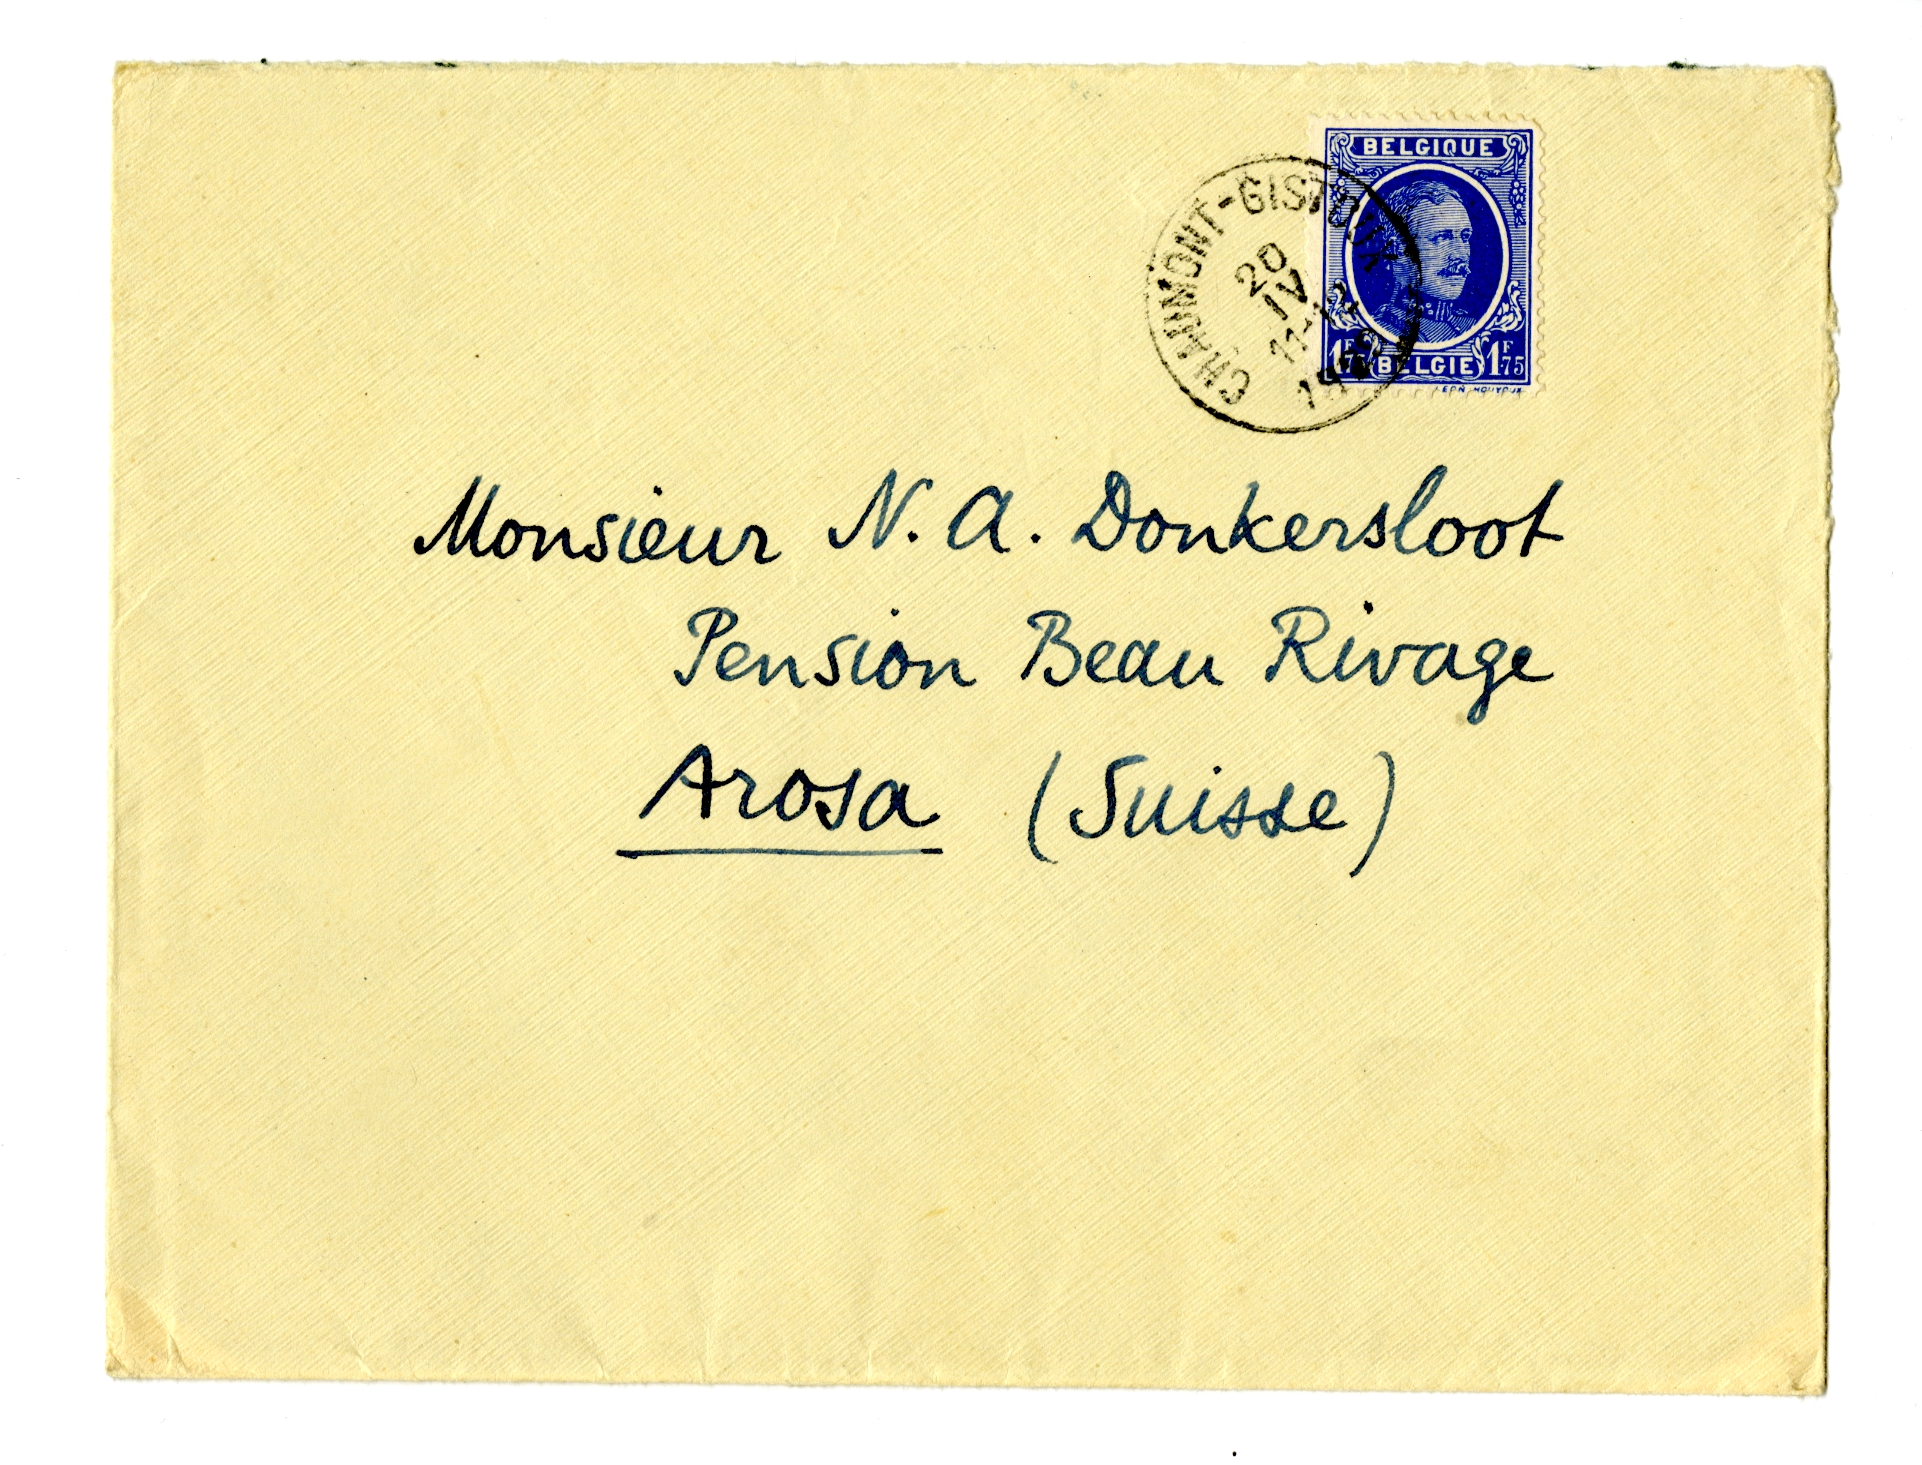 BELGIQUE
CHAUMONT-GISTOUX
20
IV
11-12
1F75 BELGIE 1F75
Monsieur N. A. Donkersloot
Pension Beau Rivage
Arosa (Suisse)